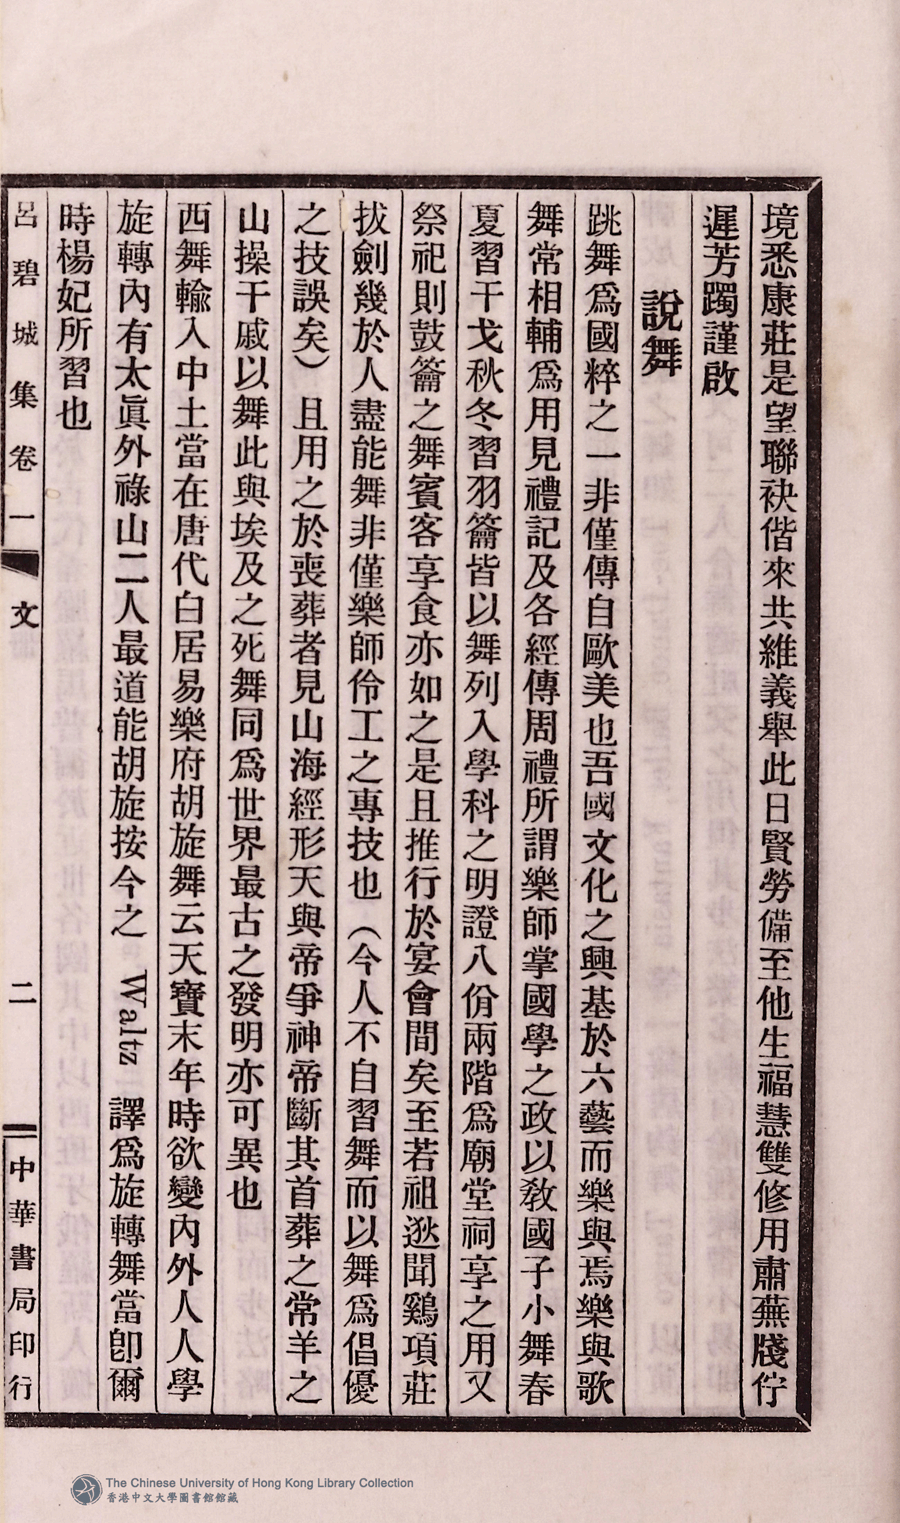 境悉康莊是望聯袂偕來共維義舉此日賢勞備至他生福慧雙修用肅蕪牋佇
遲芳躅謹啟
說舞
跳舞爲國粹之一非僅傳自歐美也吾國文化之興基於六藝而樂與焉樂與歌
舞常相輔爲用見禮記及各經傳周禮所謂樂師掌國學之政以敎國子小舞春
夏習干戈秋冬習羽籥皆以舞列入學科之明證八佾兩階爲廟堂祠享之用又
祭祀則鼓籥之舞賓客享食亦如之是且推行於宴會間矣至若祖逖聞鷄項莊
拔劍幾於人盡能舞非僅樂師伶工之專技也（今人不自習舞而以舞爲倡優
之技誤矣）且用之於喪葬者見山海經形天與帝爭神帝斷其首葬之常羊之
山操干戚以舞此與埃及之死舞同爲世界最古之發明亦可異也
西舞輸入中土當在唐代白居易樂府胡旋舞云天寶末年時欲變內外人人學
旋轉內有太眞外祿山二人最道能胡旋按今之 Waltz 譯爲旋轉舞當卽爾
時楊妃所習也
呂碧城集卷一 文 二 中華書局印行
The Chinese University of Hong Kong Library Collection
香港中文大學圖書館館藏